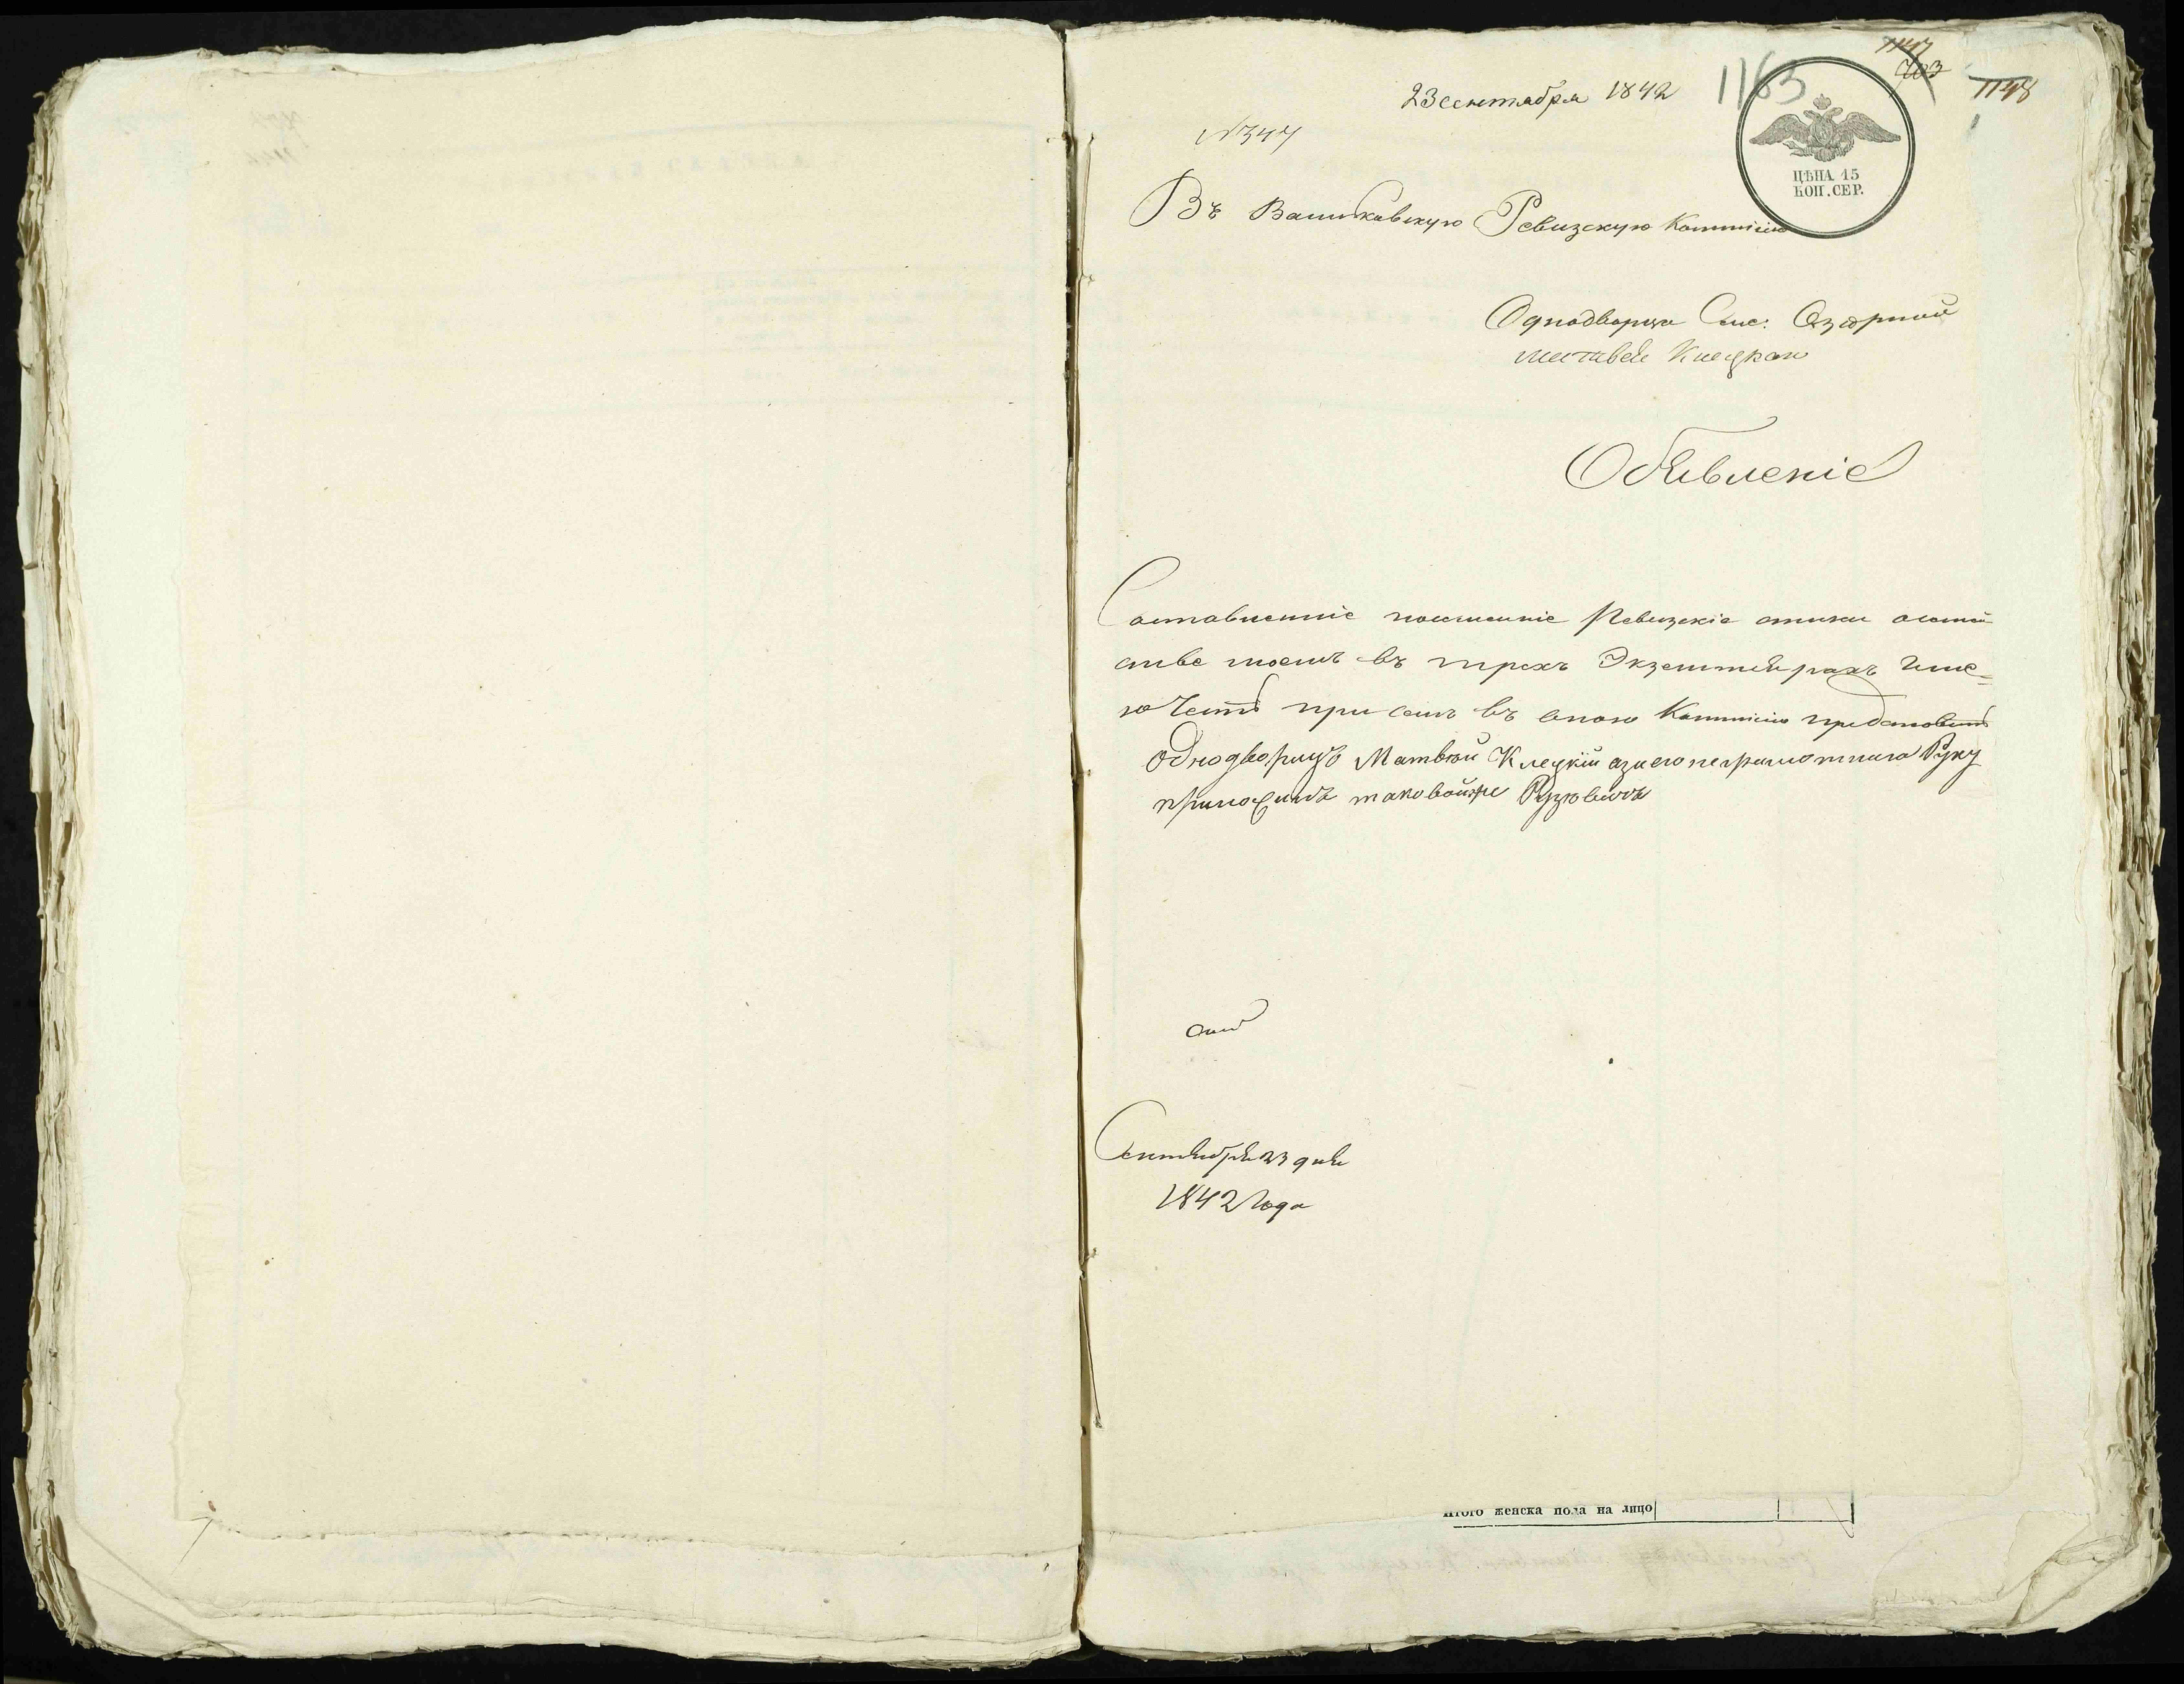 1147
703
1163
1148
23 сентября 1842
N 347
ЦѢНА 15
КОП. СЕР.
Въ Васильковскую Ревизскую Коммисію
Однодворца Сел: Озерной
Матвея Клецкаго
Объявленіе
Составленніе посемейніе Ревизскіе сказки о семей
стве моемъ въ трехъ Экземплярахъ Име-
ю Честь при семъ въ оною Коммисію предстовить
Однодворецъ Матвей Клецкій а за его неграмотнаго Руку
приложилъ таковойже
Сентября 23 дня
1842 Года
Итого женска пола на лицо